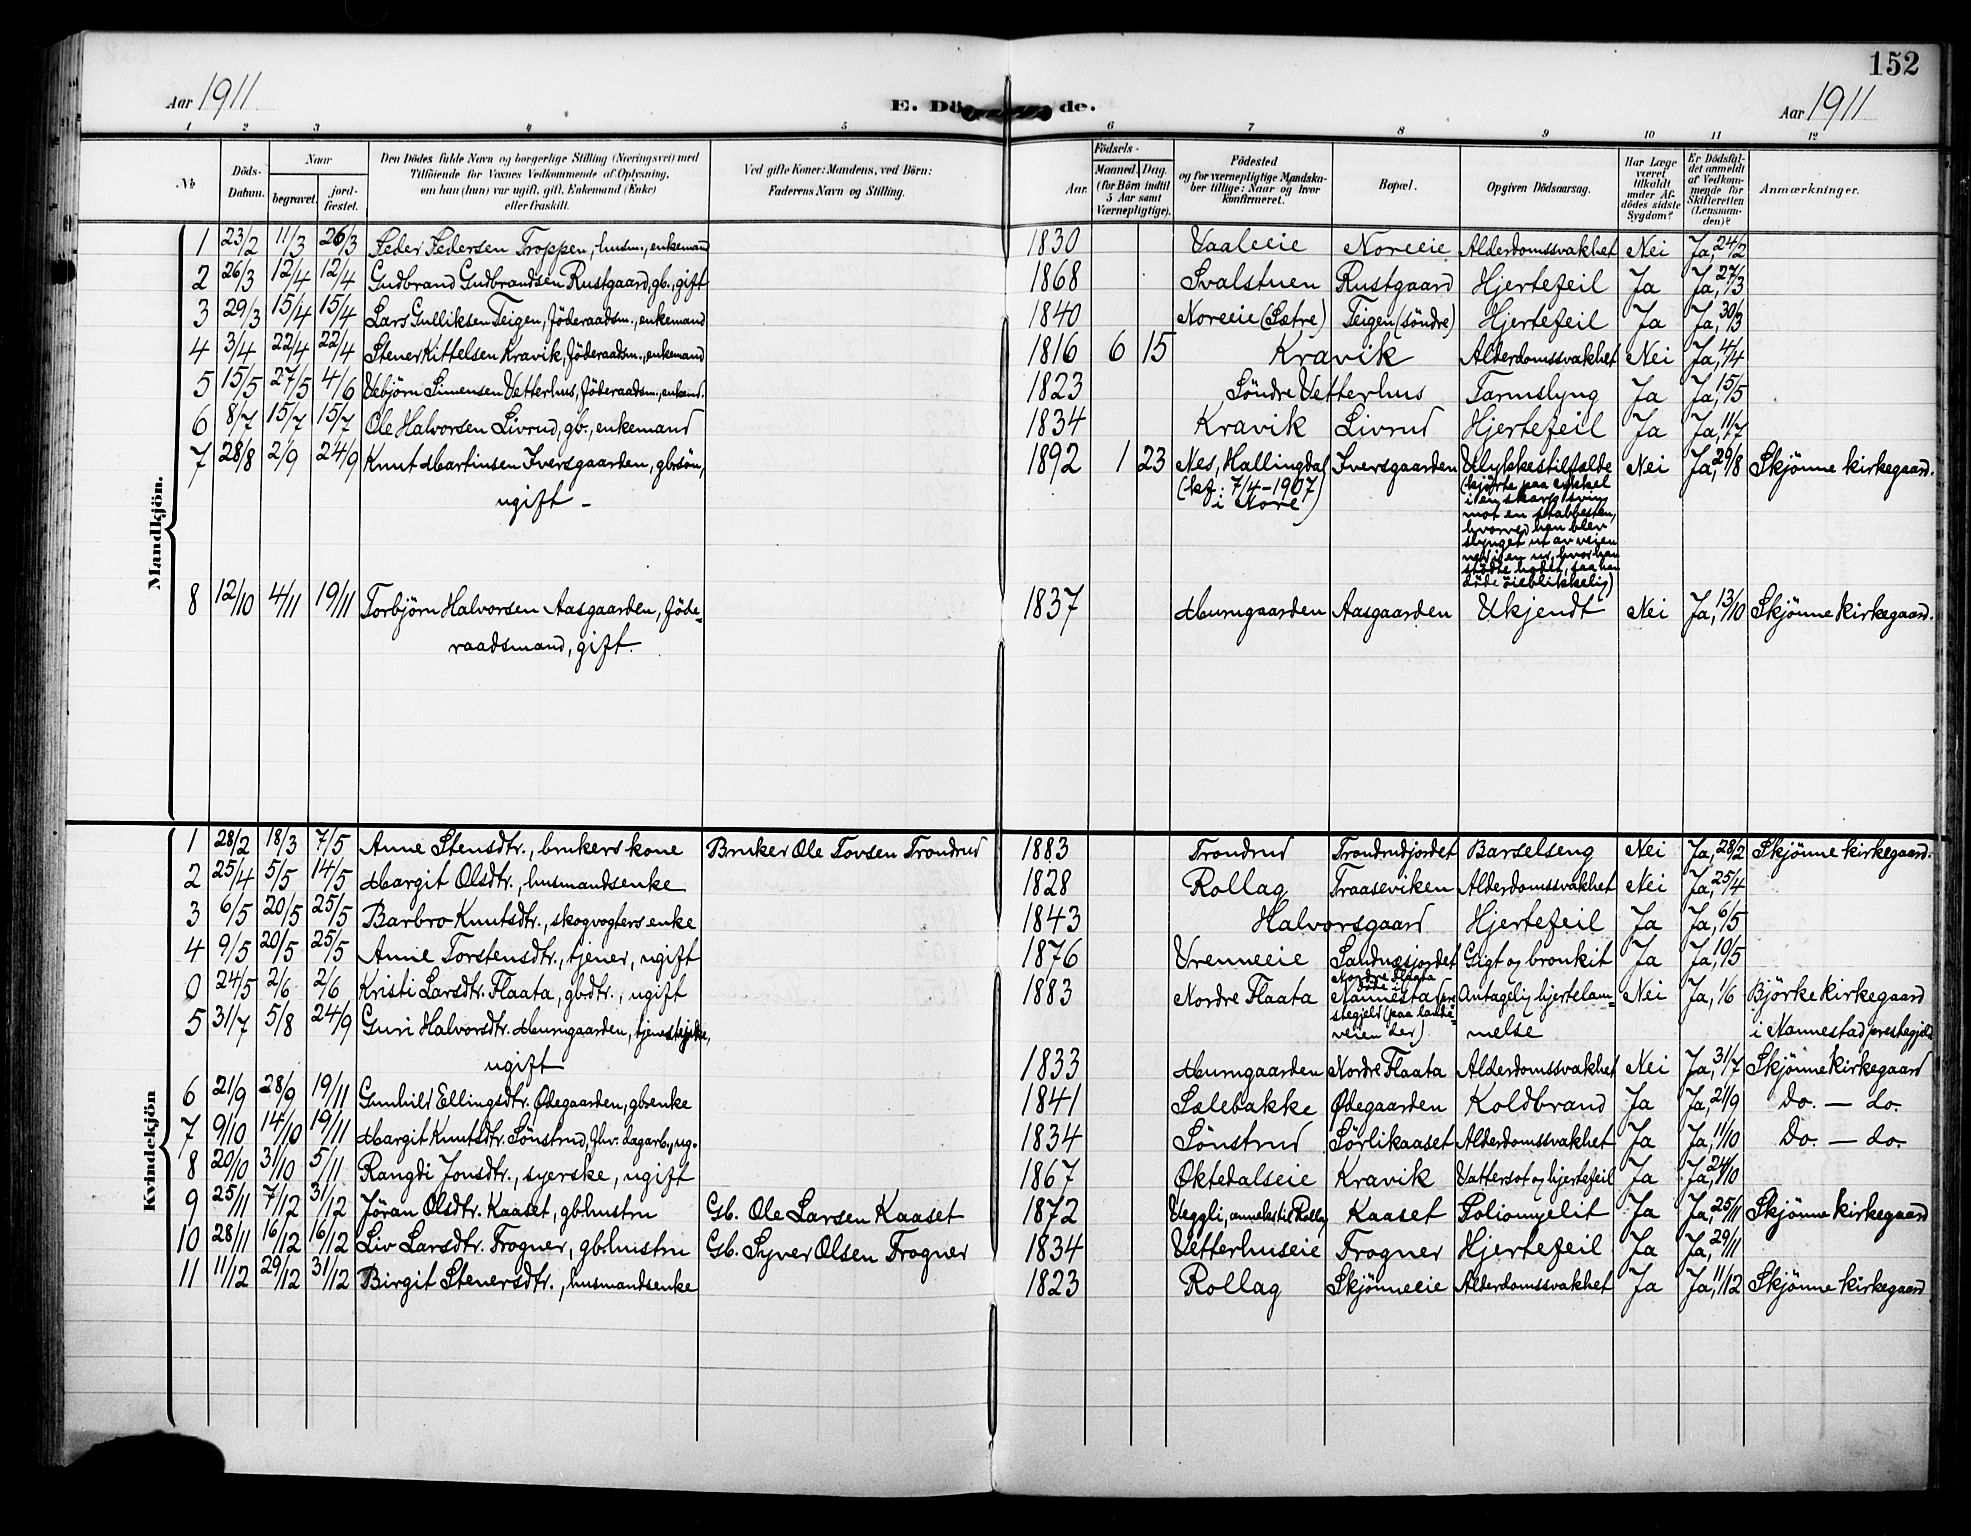 152
Aar 1911
E. Dö de.
Aar 1911
1 2 3 4 5 6 7 8 9 10 11 12
№
Döds-Datum.
Naar
begravet.
jord-fæstet.
Den Dödes fulde Navn og borgerlige Stilling (Næringsvei) med
Tilföiende for Voxnes Vedkommende af Oplysning,
om han (hun) var ugift, gift, Enkemand (Enke)
eller fraskilt.
Ved gifte Koner: Mandens, ved Börn:
Faderens Navn og Stilling.
Födsels-
Aar.
Maaned. Dag.
(for Börn indtil
5 Aar samt
Værnepligtige).
Födested
og for værnepligtige Mandska-
ber tillige: Naar og hvor
konfirmeret.
Bopæl.
Opgiven Dödsaarsag.
Har Læge
været
tilkaldt
under Af-
dödes sidste
Sygdom?
Er Dödsfal-
det anmeldt
af Vedkom-
mende for
Skifteretten
(Lensman-
den)?
Anmærkninger.
Mandkjön.
1 23/2 11/3 26/3 Peder Pedersen Troppen, husm., enkemand 1830 Vaaleeie Noreeie Alderdomssvakhet Nei Ja, 24/2
2 26/3 12/4 12/4 Gudbrand Gudbrandsen Rustgaard, gb., gift 1868 Svalstuen Rustgaard Hjertefeil Ja Ja, 27/3
3 29/3 15/4 15/4 Lars Gulliksen Teigen, föderaadsm., enkemand 1840 Noreeie (Sætre) Teigen (söndre) Hjertefeil Ja Ja, 30/3
4 3/4 22/4 22/4 Stener Kittelsen Kravik, föderaadsm., enkemand 1816 6 15 Kravik Alderdomssvakhet Nei Ja, 4/4
5 15/5 27/5 4/6 Vebjörn Simensen Vetterhus, föderaadsm., enkemd. 1823 Söndre Vetterhus Tarmslyng Ja Ja, 15/5
6 8/7 15/7 15/7 Ole Halvorsen Livrud, gb., enkemand 1834 Kravik Livrud Hjertefeil Ja Ja, 11/7
7 28/8 2/9 24/9 Knut Martinsen Iversgaarden, gbrsön, 1892 1 23 Nes, Hallingdal Iversgaarden Ulykkestilfælde Nei Ja, 29/8 Skjönne kirkegaard.
ugift - (kf: 7/4-1907 i Nore) (kjörte paa cykkel
i en skarp sving
mot en stabbesten,
hvorved han blev
slynget ut av veien
ned i en ur, hvor han
stötte hodet, saa han
döde öieblikkelig)
8 12/10 4/11 19/11 Torbjörn Halvorsen Aasgaarden, föde- 1837 Murngaarden Aasgaarden Ukjendt Nei Ja, 13/10 Skjönne kirkegaard.
raadsmand, gift.
Kvindekjön
1 28/2 18/3 7/5 Anne Stensdtr., brukers kone Bruker Ole Tovsen Trondrud 1883 Trondrud Trondrudjordet Barselseng Nei Ja, 28/2 Skjönne kirkegaard.
2 25/4 5/5 14/5 Margit Olsdtr., husmandsenke 1828 Rollag Traaseviken Alderdomssvakhet Nei Ja, 25/4
3 6/5 20/5 25/5 Barbro Knutsdtr., skogvogters enke 1843 Halvorsgaard Hjertefeil Ja Ja, 6/5
4 9/5 20/5 25/5 Anne Torstensdtr., tjener, ugift 1876 Vrenneeie Sandnesjordet Gigt og bronkit Ja Ja, 10/5
0 24/5 2/6 2/6 Kristi Larsdtr. Flaata, gbdtr., ugift 1883 Nordre Flaata Nordre Flaata döde i Nannestad pre- Antagelig hjertelam- Nei Ja, 1/6 Björke kirkegaard
stegjeld (paa lande-
veien der) melse i Nannestad prestegjeld
5 31/7 5/8 24/9 Guri Halvorsdtr. Murngaarden, tjenestepike,
ugift 1833 Murngaarden Nordre Flaata Alderdomssvakhet Nei Ja, 31/7 Skjönne kirkegaard
6 21/9 28/9 19/11 Gunhild Ellingsdtr. Ødegaarden, gbrenke 1841 Sælebakke Ødegaarden Koldbrand Ja Ja, 21/9 Do. — do.
7 9/10 14/10 19/11 Margit Knutsdtr. Sönstrud, fhv. dagarb., ug. 1834 Sönstrud Sörlikaaset Alderdomssvakhet Ja Ja, 11/10 Do. — do.
8 20/10 31/10 5/11 Rangdi Jonsdtr., syerske, ugift 1867 Øktedalseie Kravik Vattersot og hjertefeil Ja Ja, 24/10
9 25/11 7/12 31/12 Jöran Olsdtr. Kaaset, gbhustru Gb. Ole Larsen Kaaset 1872 Veggli, anneks til Rollag Kaaset Poliomyelit Ja Ja, 25/11 Skjönne kirkegaard
10 28/11 16/12 16/12 Liv Larsdtr. Frogner, gbrhustru Gb. Syver Olsen Frogner 1834 Vetterhuseie Frogner Hjertefeil Ja Ja, 29/11
11 11/12 29/12 31/12 Birgit Stenersdtr., husmandsenke 1823 Rollag Skjönneeie Alderdomssvakhet Ja Ja, 11/12 Skjönne kirkegaard